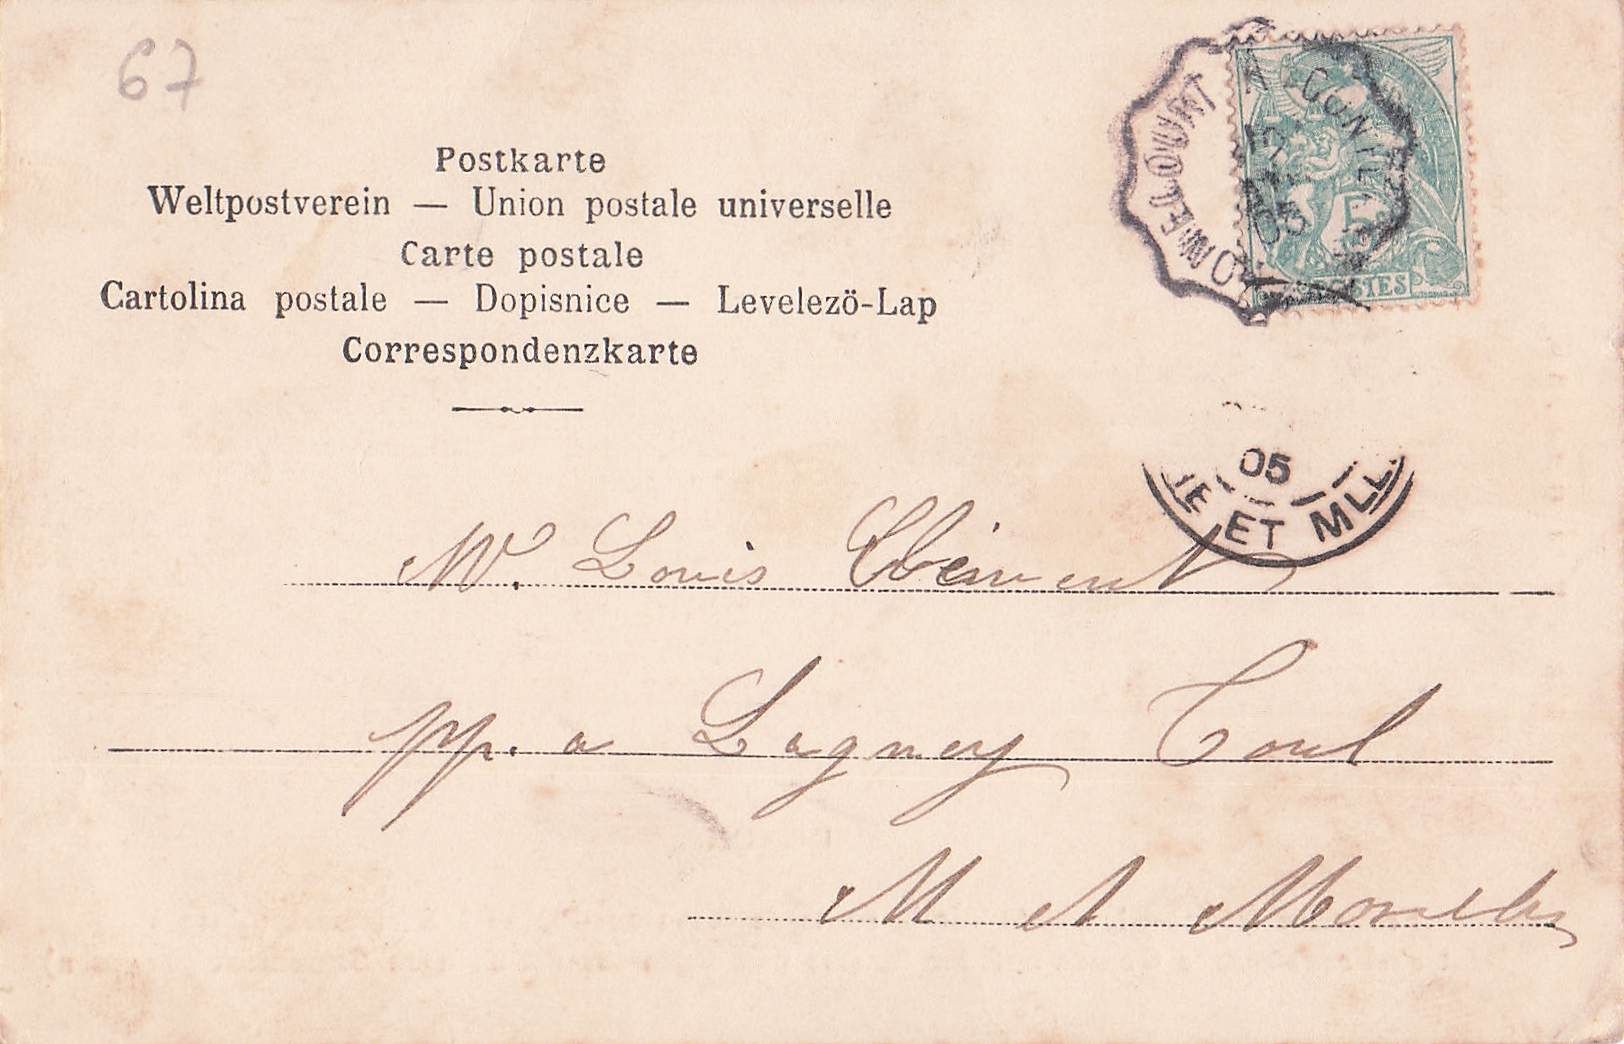 67
Postkarte
Weltpostverein — Union postale universelle
Carte postale
Cartolina postale — Dopisnice — Levelezö-Lap
Correspondenzkarte
HOMÉCOURT A CONFLANS
05
POSTES
05
ET MLLE
Mr. Louis
pp. a Lagney Toul
M et Moselle